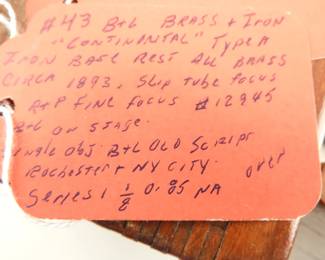 #43 B+L BRASS + IRON
"CONTINENTAL" TYPE A
IRON BASE REST ALL BRASS
CIRCA 1893, Slip TUBE FOCUS
R+P FINE FOCUS #12945
B+L ON STAGE.
Single OBJ. B+L OLD SCRIPT
ROCHESTER + NY CITY.
OVER
SERIES 1 1/2 0.85 NA